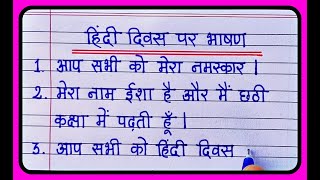 हिंदी दिवस पर भाषण
1. आप सभी को मेरा नमस्कार ।
2. मेरा नाम ईशा है और मैं छठी
कक्षा में पढ़ती हूँ ।
3. आप सभी को हिंदी दिवस